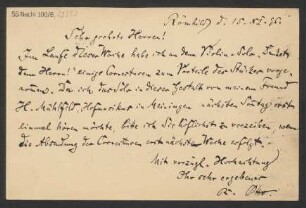 SS Nachl 100/B,
Römhild d. 15. XII. 96.
Sehr geehrte Herren!
Im Laufe dieser Woche habe ich an dem Violin-Solo
dem Herrn!" einige Correcturen zum Vorteile des Stückes vorge-
nommen. Da ich das Solo in dieser Gestalt von meinem Freund
H. Mühlfeld, Hofmusikus in Meiningen nächsten Sonntag erst
einmal hören möchte, bitte ich Sie höflichst zu verzeihen, wenn
die Absendung der Correcturen erst nächste Woche erfolgt.
Mit vorzügl. Hochachtung
Ihr sehr ergebener